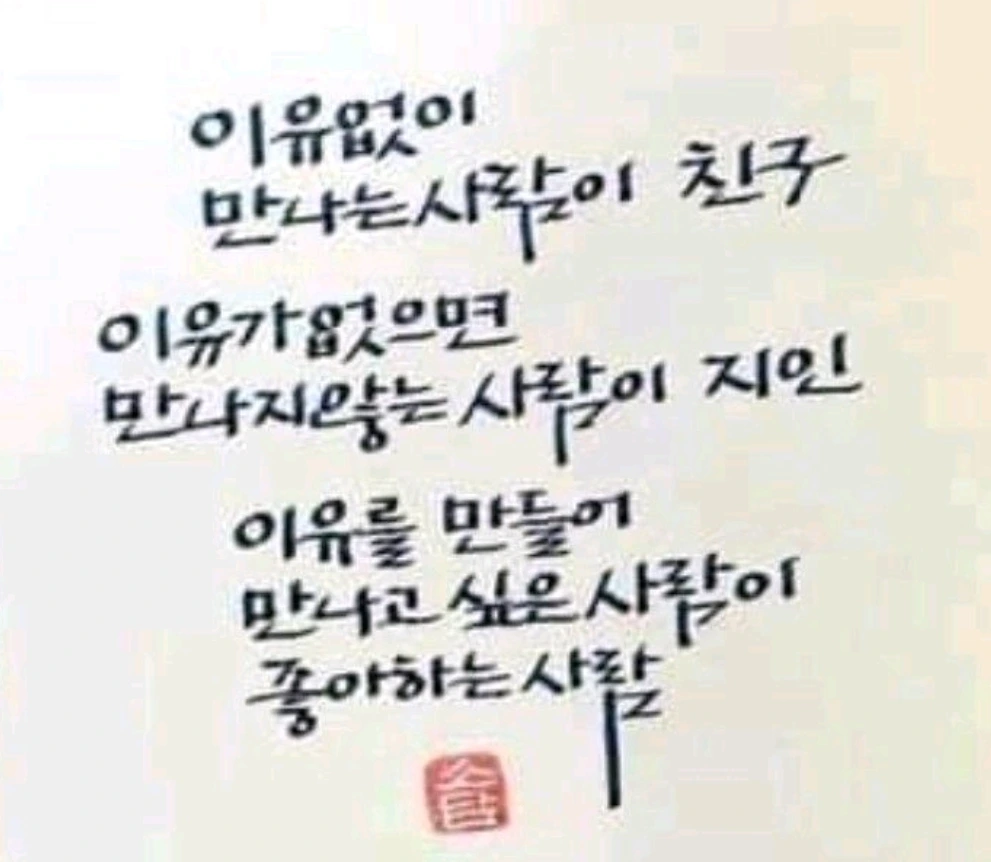 이유없이
만나는사람이 친구
이유가없으면
만나지않는 사람이 지인
이유를 만들어
만나고 싶은 사람이
좋아하는 사람